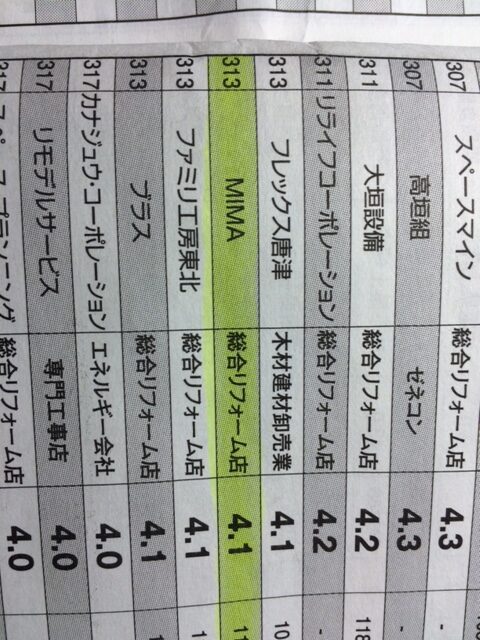 307 スペースマイン 総合リフォーム店 4.3
307 高垣組 ゼネコン 4.3 -
311 大垣設備 総合リフォーム店 4.2 118
311 リライフコーポレーション 総合リフォーム店 4.2 -
313 フレックス唐津 木材建材卸売業 4.1 10
313 MIMA 総合リフォーム店 4.1 11
313 ファミリ工房東北 総合リフォーム店 4.1 1
313 プラス 総合リフォーム店 4.1 1
317 カナジュウ・コーポレーション エネルギー会社 4.0
317 リモデルサービス 専門工事店 4.0
317 スペースプランニング 総合リフォーム店 4.0